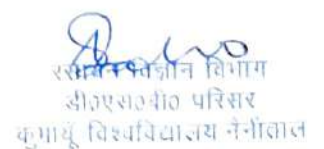 रसायन विज्ञान विभाग
डी०एस०बी० परिसर
कुमायूँ विश्वविद्यालय नैनीताल